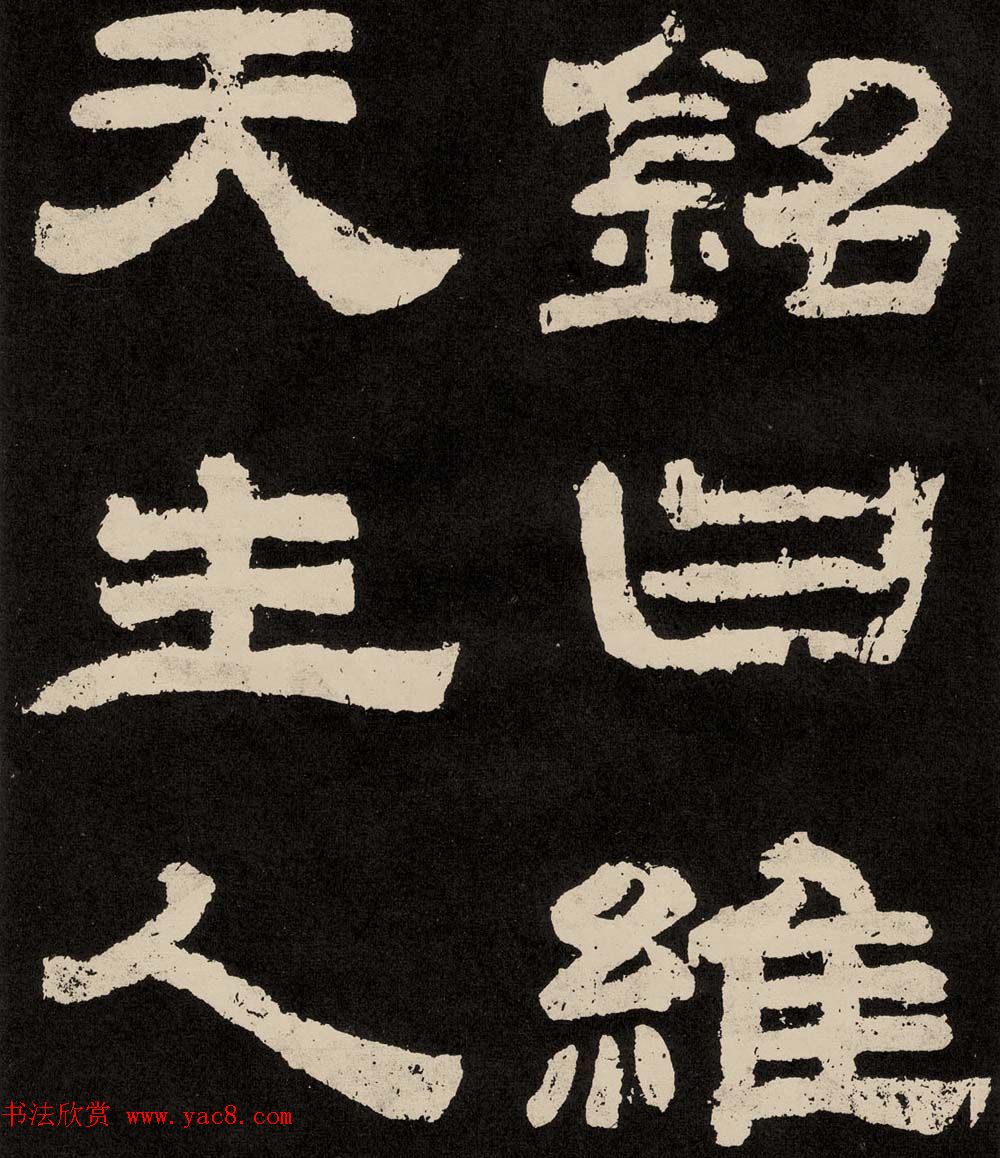 銘曰維
天生人
书法欣赏 www.yac8.com